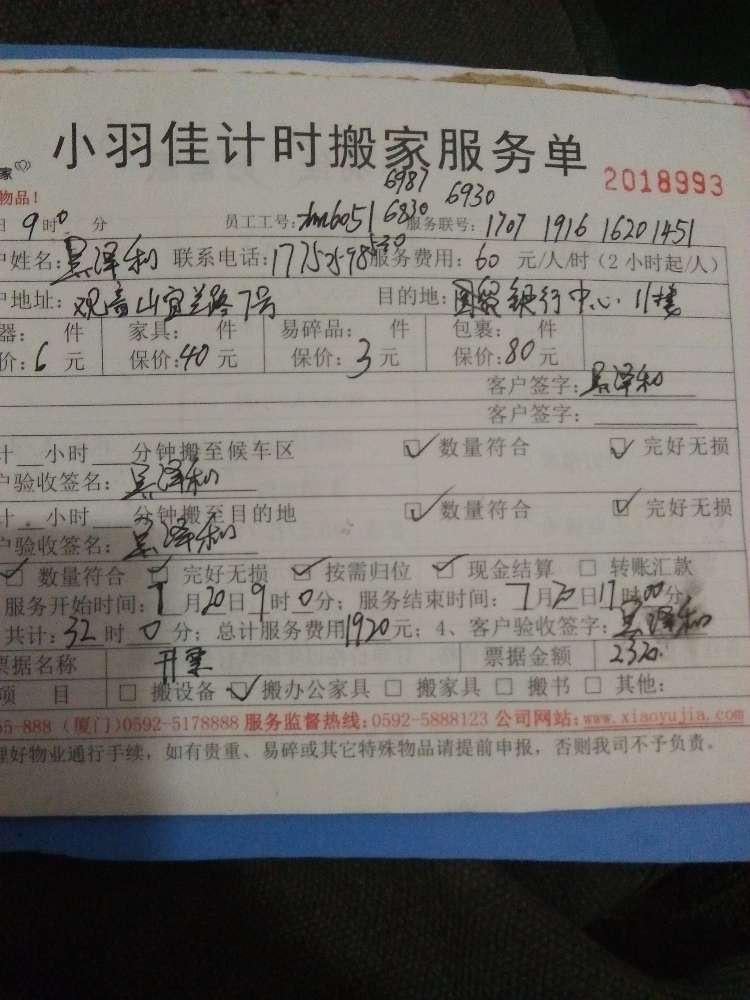 小羽佳计时搬家服务单
家
2018993
物品!
6987 6930
日 9时0 分 员工工号: 6051 6830 服务联号: 1707 1916 1620 1451
户姓名: 吴泽利 联系电话: 服务费用: 60 元/人/时(2小时起/人)
户地址: 观音山宜兰路7号 目的地: 国贸银行中心 11楼
器: 件 家具: 件 易碎品: 件 包裹: 件
价: 6 元 保价: 40 元 保价: 3 元 保价: 80 元
客户签字: 吴泽利
客户签字:
计 小时 分钟搬至候车区 ☑数量符合 ☑完好无损
户验收签名: 吴泽利
计 小时 分钟搬至目的地 ☑数量符合 ☑完好无损
户验收签名: 吴泽利
☑数量符合 ☑完好无损 ☑按需归位 ☑现金结算 □转账汇款
服务开始时间: 7月20日9时0分; 服务结束时间: 7月20日17时00分
共计: 32时0分; 总计服务费用1920元; 4、客户验收签字: 吴泽利
票据名称 开票 票据金额 2320
项 目 □搬设备 ☑搬办公家具 □搬家具 □搬书 □其他:
55-888 (厦门)0592-5178888 服务监督热线:0592-5888123 公司网站:www.xiaoyujia.com
理好物业通行手续，如有贵重、易碎或其它特殊物品请提前申报，否则我司不予负责。